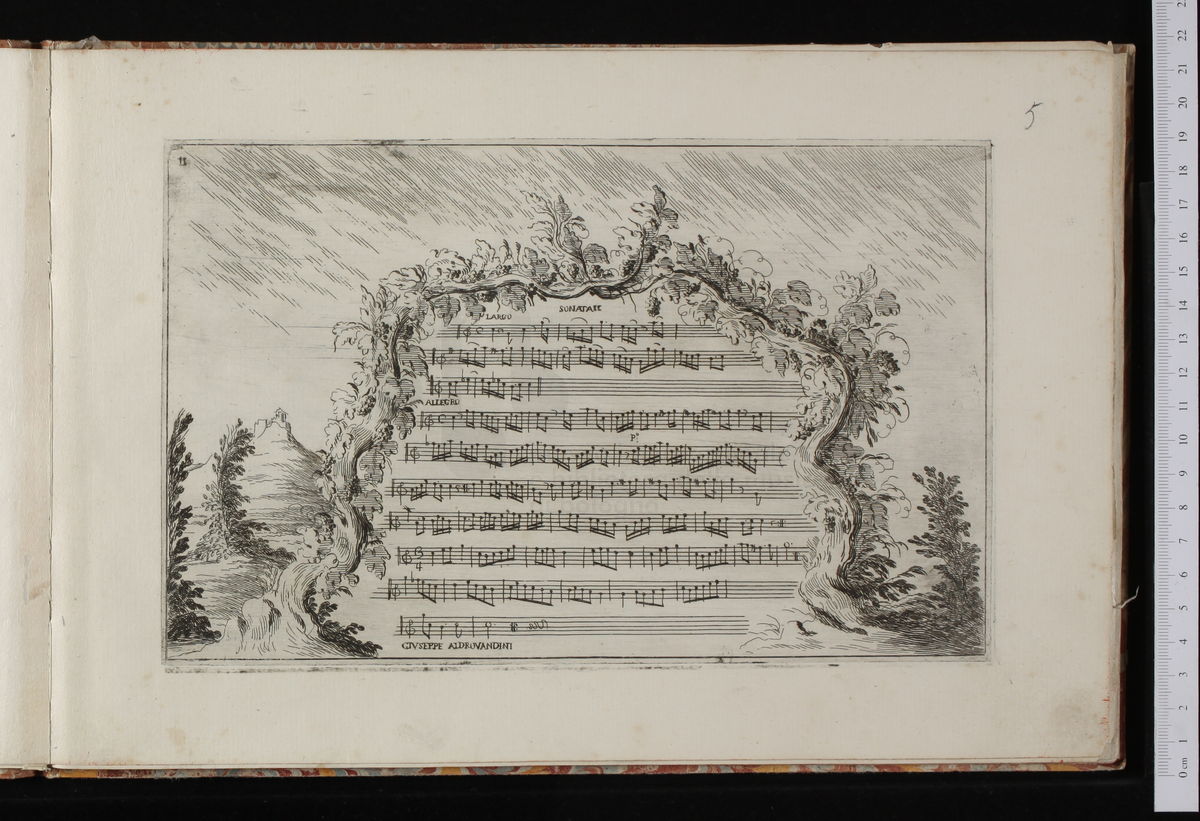 5
11
SONATA II
LARGO
ALLEGRO
P.º
GIVSEPPE ALDROVANDINI
0 cm 1 2 3 4 5 6 7 8 9 10 11 12 13 14 15 16 17 18 19 20 21 22